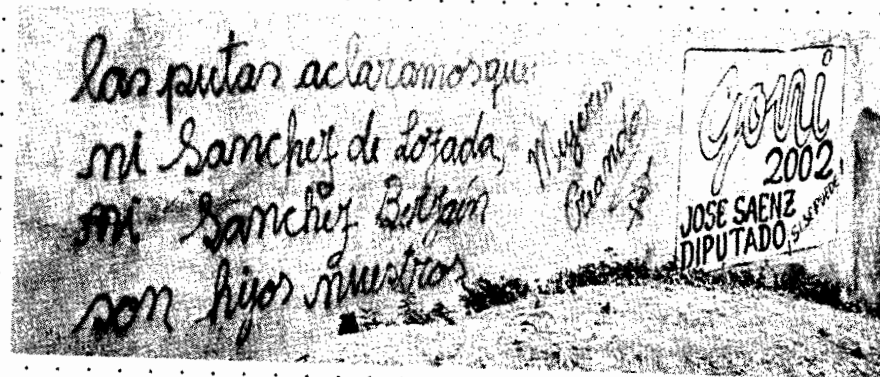 las putas aclaramos que
ni Sanchez de Lozada,
ni Sanchez Berzaín
son hijos nuestros
Mujeres
Creando
Goni
2002
JOSE SAENZ
DIPUTADO
¡SI SE PUEDE!